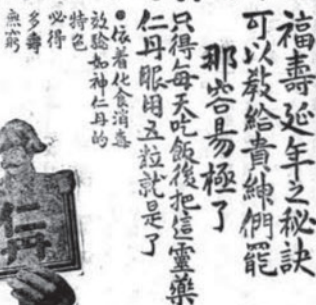 福壽延年之秘訣
可以教給貴綀們罷
那容易極了
只得每天吃飯後把這靈藥
仁丹眼用五粒就是了
●依着化食消毒
效驗如神仁丹的
特色
必得
多壽
無窮
仁丹